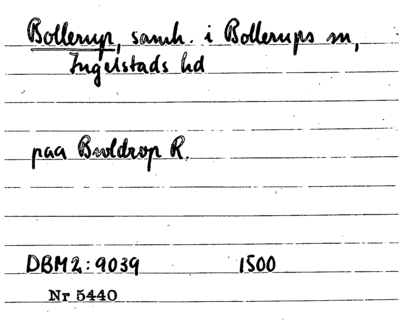 Bollerup, samh. i Bollerups sn,
Ingelstads hd
paa Boldrop R.
DBM2:9039 1500
Nr 5440